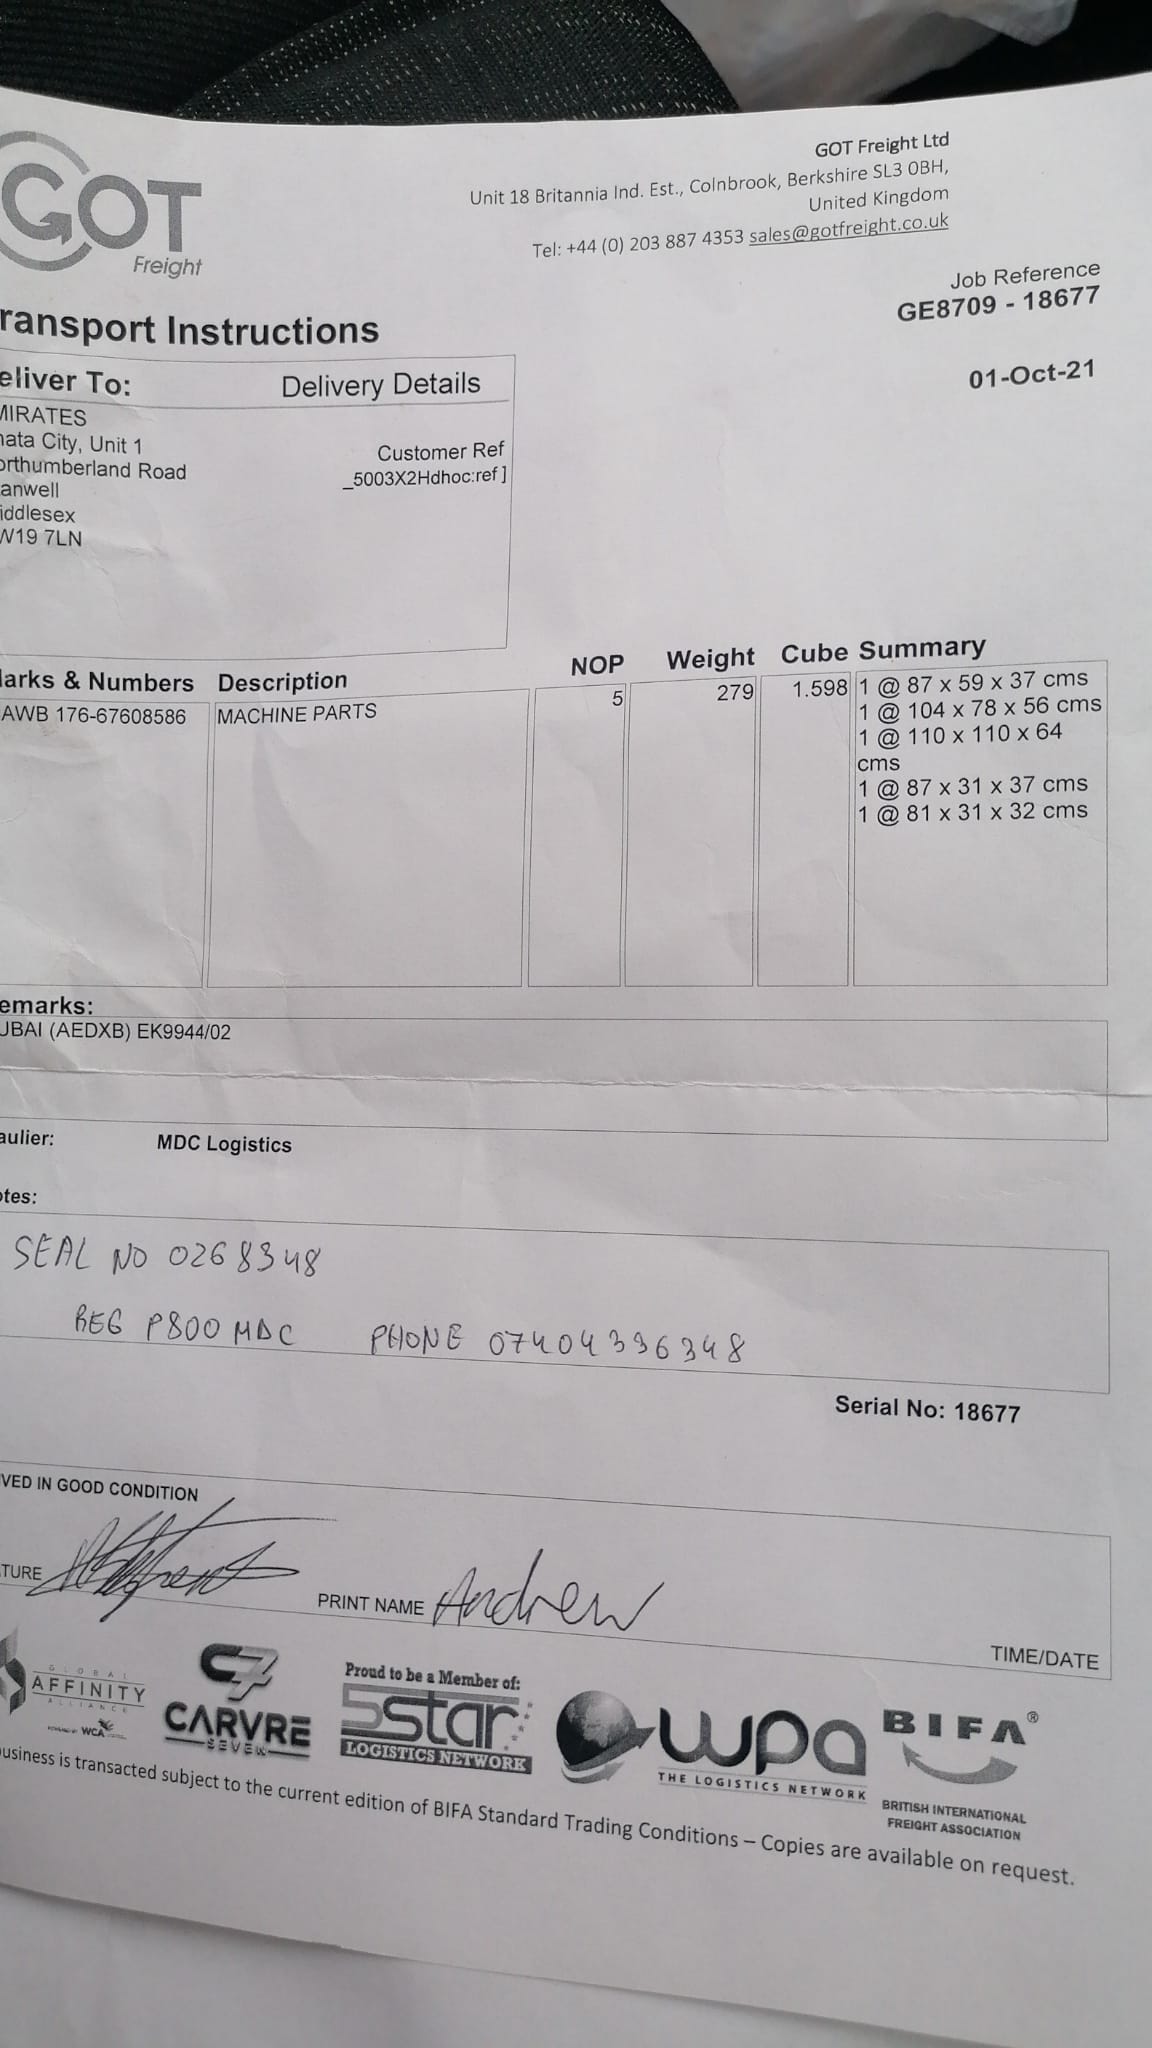 GOT
Freight
GOT Freight Ltd
Unit 18 Britannia Ind. Est., Colnbrook, Berkshire SL3 0BH,
United Kingdom
Tel: +44 (0) 203 887 4353 sales@gotfreight.co.uk
Job Reference
GE8709 - 18677
01-Oct-21
ransport Instructions
eliver To: Delivery Details
MIRATES
nata City, Unit 1
orthumberland Road
anwell
iddlesex
W19 7LN
Customer Ref
_5003X2Hdhoc:ref ]
larks & Numbers Description NOP Weight Cube Summary
AWB 176-67608586 MACHINE PARTS 5 279 1.598 1 @ 87 x 59 x 37 cms
1 @ 104 x 78 x 56 cms
1 @ 110 x 110 x 64
cms
1 @ 87 x 31 x 37 cms
1 @ 81 x 31 x 32 cms
emarks:
UBAI (AEDXB) EK9944/02
aulier: MDC Logistics
otes:
SEAL NO 0268348
REG P800 MDC PHONE 07404336348
Serial No: 18677
VED IN GOOD CONDITION
TURE PRINT NAME Andrew
TIME/DATE
GLOBAL
AFFINITY
ALLIANCE
POWERED BY WCA
C7
CARVRE
SEVEN
Proud to be a Member of:
5star
LOGISTICS NETWORK
wpa
THE LOGISTICS NETWORK
BIFA®
BRITISH INTERNATIONAL
FREIGHT ASSOCIATION
usiness is transacted subject to the current edition of BIFA Standard Trading Conditions – Copies are available on request.